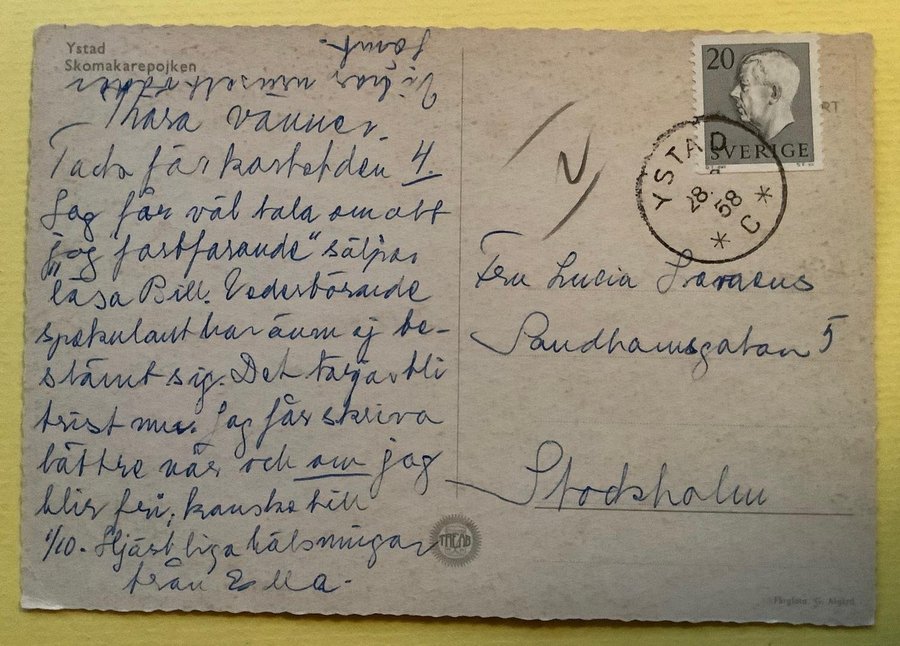 Ystad
Skomakarepojken
Vi har
samt.
Kära vänner.
Tack för kortet den 4.
Jag får väl tala om att
jag fortfarande" säljer
läsa Bill. Vederbörande
spekulant har ännu ej be-
stämt sig. Det börjar bli
trist nu. Jag får skriva
bättre när och om jag
blir fri, kanske till
1/10. Hjärtliga hälsningar
från Ella.
20
SVERIGE
YSTAD
28
58
* C *
Fru Lucia
Sandhamsgatan 5
Stockholm